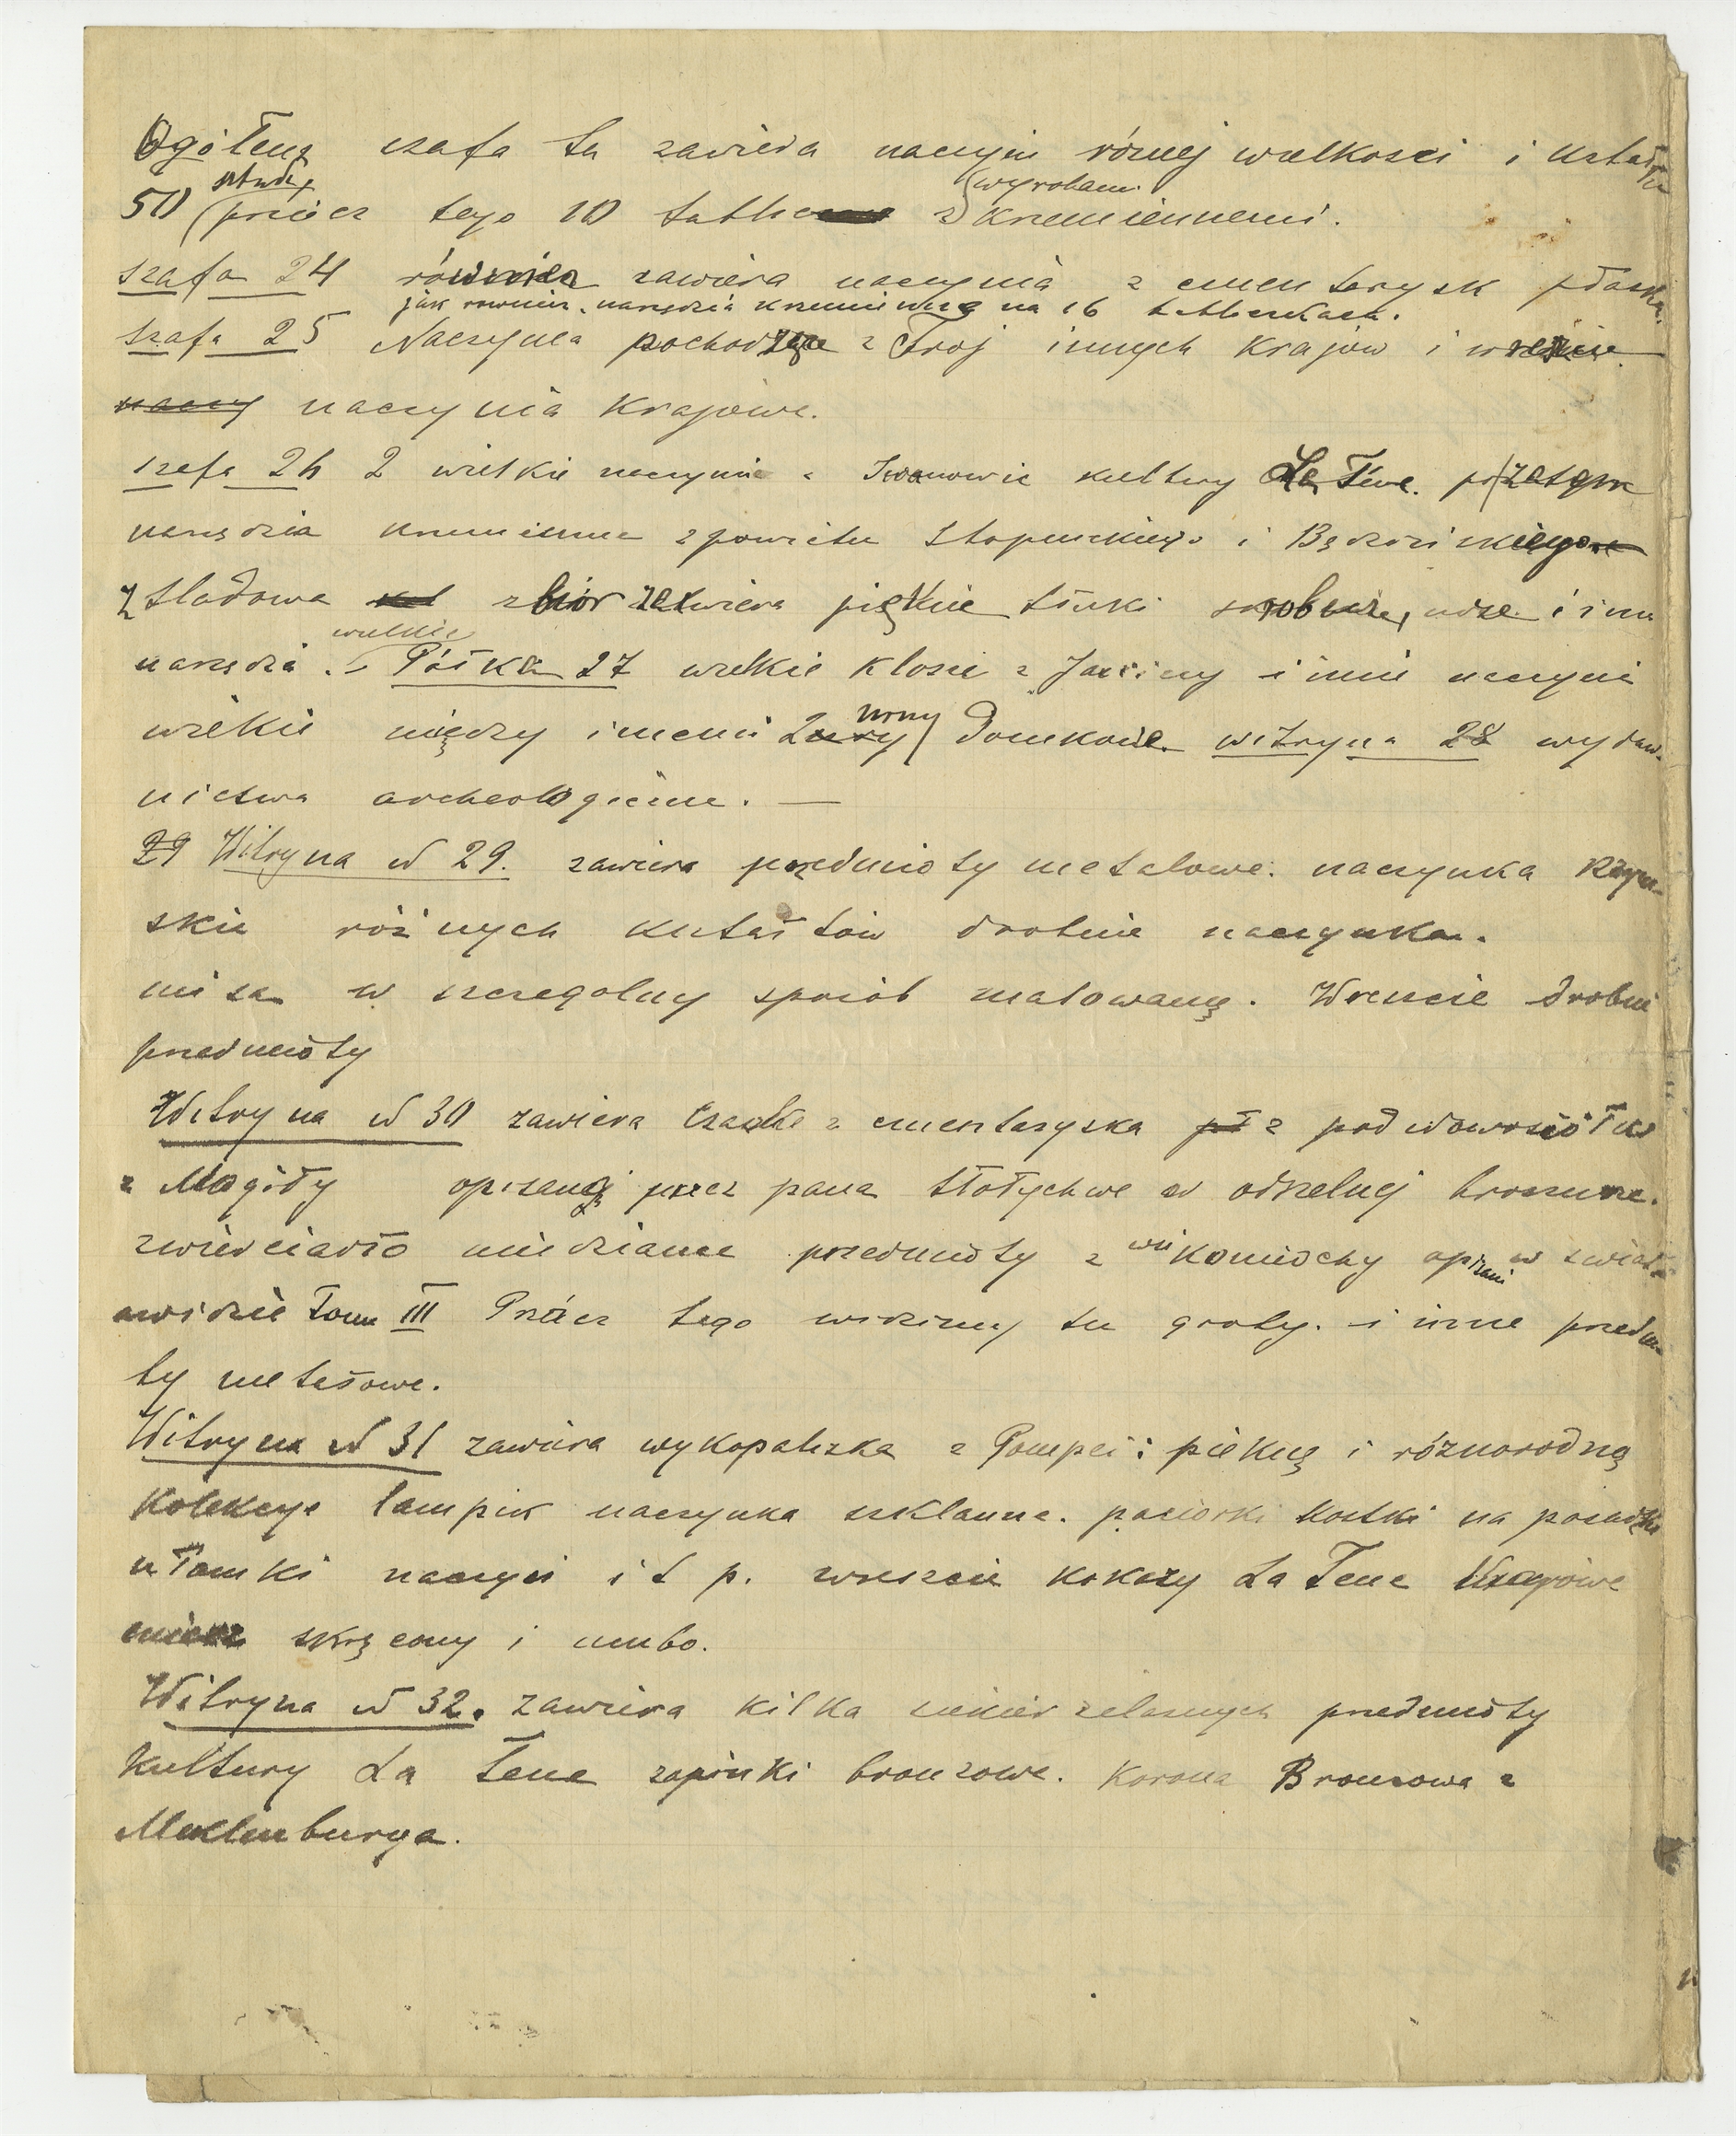 Ogółem szafa ta zawiera naczyń różnej wielkości i kształtu
sztuk
wyrobami
50 prócz tego 10 tablic z krzemiennemi.
szafa 24 również zawiera naczynia z cmentarzysk płask.
jak również narzędzia krzemienne na 16 tabliczkach.
szafa 25 Naczynia pochodzące z Troj innych krajów i wreszcie
naczy naczynia krajowe.
szafa 26 2 wielkie naczynia z Iwanowic kultury La Tène. przytem
narzędzia krzemienne z powiatu Stopnickiego i Będzińskiego
z Sladowa zbiór zawiera piękne tłuki skrobacze, noże i inne
wielkie
narzędzia. – Półka 27 wielkie klosze z Jasiony i inne naczynia
urny
wielkie między innemi 2 domkowe. witryna 28 wydaw-
nictwa archeologiczne. —
29 Witryna N 29. zawiera przedmioty metalowe: naczynka rzym-
skie różnych kształtów drobne naczynka.
misa w szczególny sposób malowaną. Wreszcie drobne
przedmioty
Witryna N 30 zawiera czaszkę z cmentarzyska z pod Nowosiółki
z Mogiły opisaną przez pana Stołychwę w odzielnej broszurze.
zwierciadło miedziane przedmioty z wsi Komiochy opisani w świato-
widzie Tom III Prócz tego widzimy tu groty. i inne przedmio-
ty metalowe.
Witryna N 31 zawiera wykopaliska z Pompei: piękną i różnorodną
kolekcye lampek naczynka szklanne. paciorki kostki na posadzki
ułamki naczyń i t p. wreszcie okazy La Tene krajowe
miecz skręcony i umbo.
Witryna N 32. zawiera kilka siekier żelaznych przedmioty
kultury La Tene zapinki bronzowe. Korona Bronzowa z
Meklenburga.